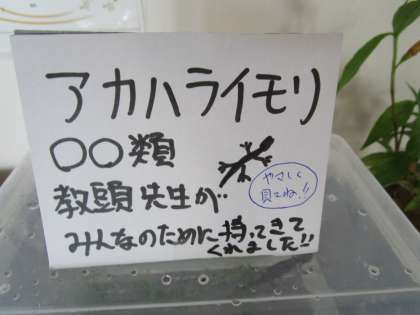 アカハライモリ
〇〇類
教頭先生が
みんなのために持ってきて
くれました!!
やさしく
見てね!!